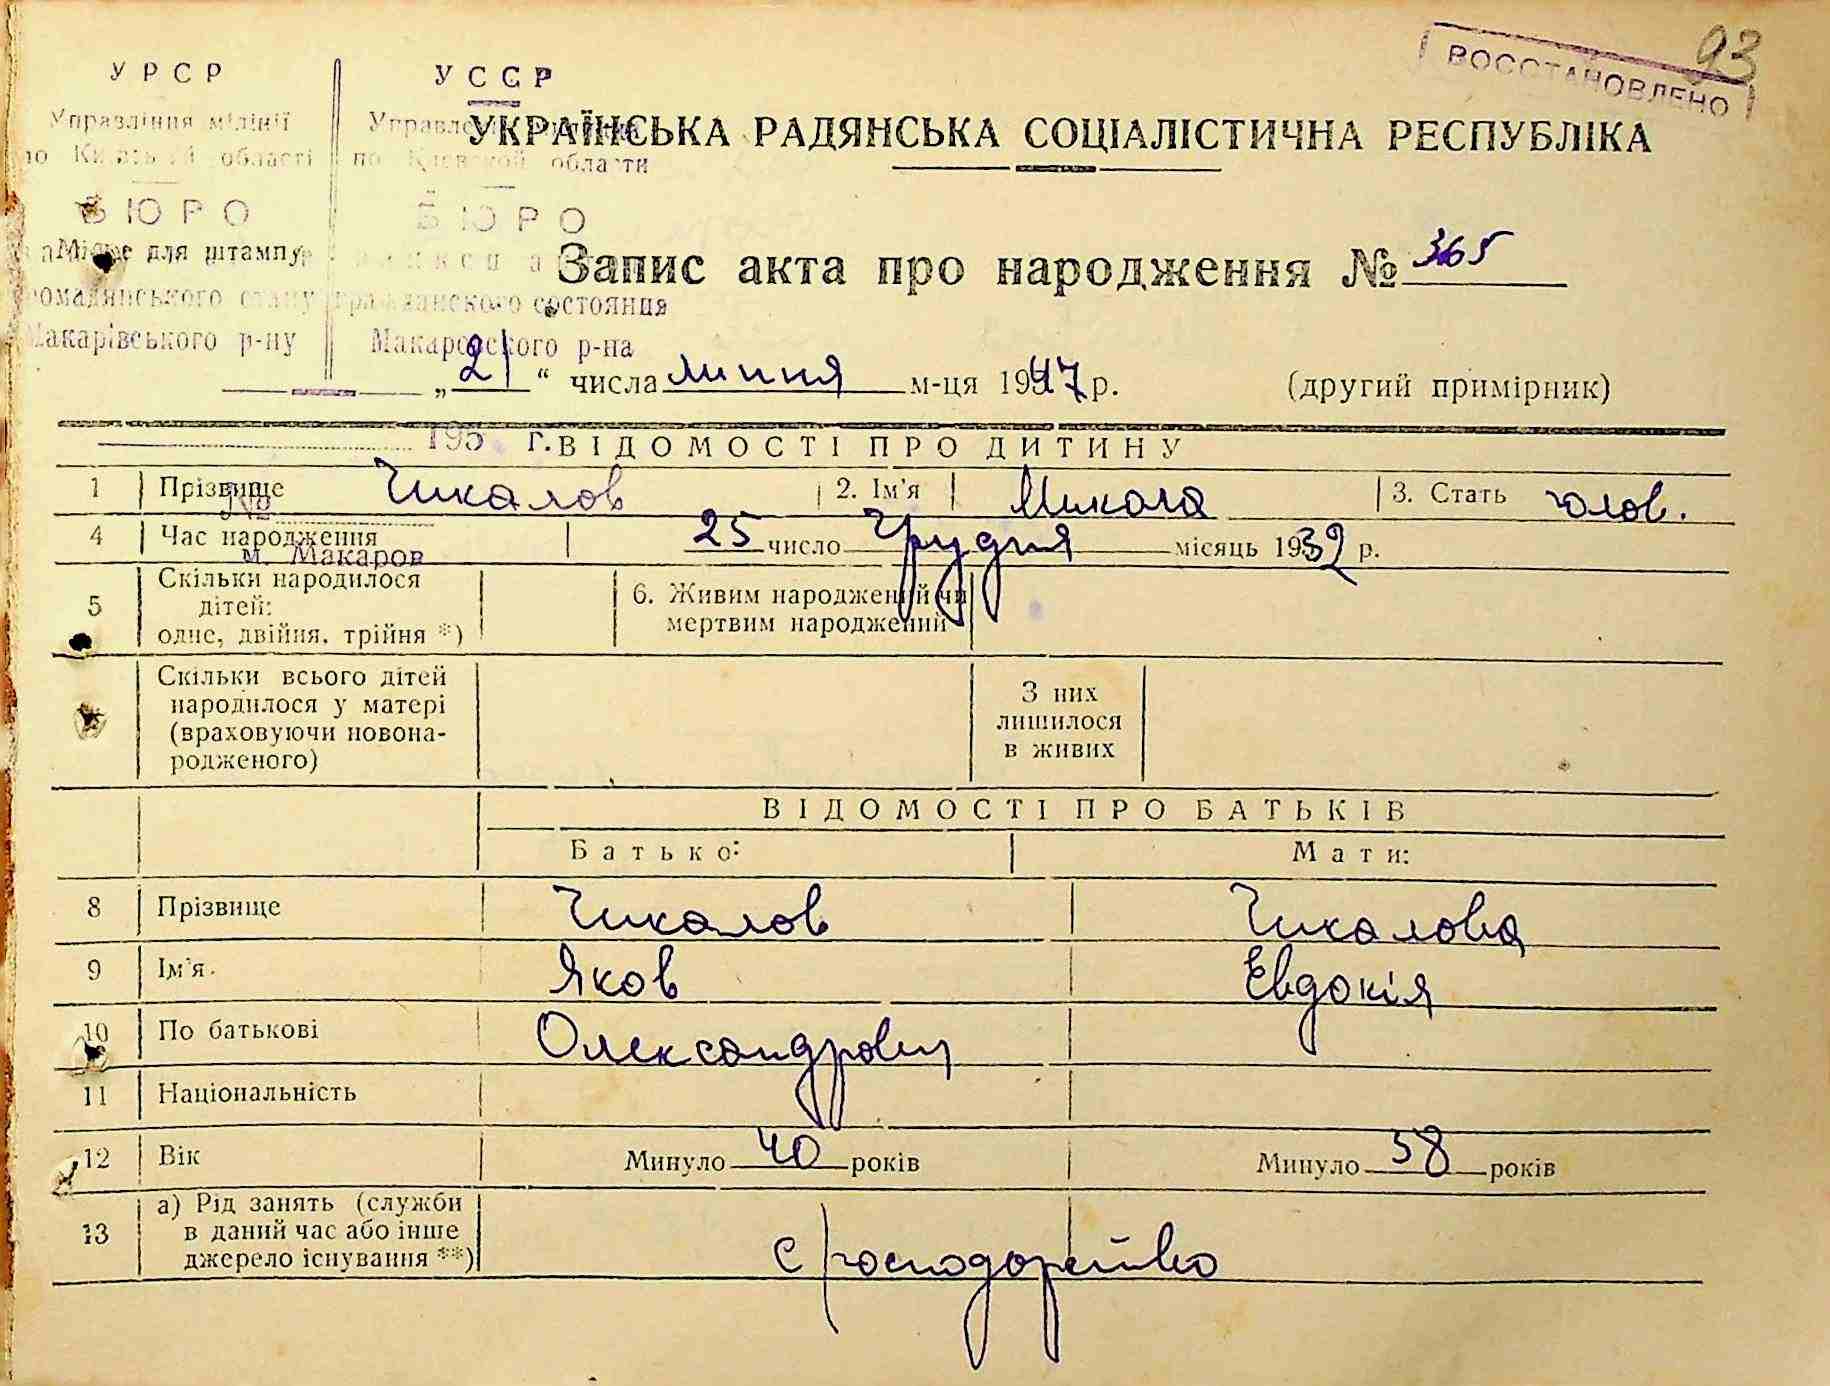 93
ВОССТАНОВЛЕНО
УРСР
Управління міліції
по Київській області
БЮРО
громадянського стану
Макарівського р-ну
УССР
по Киевской области
БЮРО
гражданского состояния
Макаровского р-на
195 г.
№
м. Макаров
УКРАЇНСЬКА РАДЯНСЬКА СОЦІАЛІСТИЧНА РЕСПУБЛІКА
Місце для штампу
Запис акта про народження № 365
„21“ числа липня м-ця 1947 р. (другий примірник)
ВІДОМОСТІ ПРО ДИТИНУ
1 Прізвище Чикалов 2. Ім'я Микола 3. Стать чолов.
4 Час народження 25 число Грудня місяць 1932 р.
5 Скільки народилося дітей: одне, двійня, трійня *) 6. Живим народжений чи мертвим народжений
Скільки всього дітей народилося у матері (враховуючи новонародженого) З них лишилося в живих
ВІДОМОСТІ ПРО БАТЬКІВ
Батько: Мати:
8 Прізвище Чикалов Чикалова
9 Ім'я Яков Евдокія
10 По батькові Олександрович
11 Національність
12 Вік Минуло 40 років Минуло 38 років
13 а) Рід занять (служби в даний час або інше джерело існування **) с/господарство